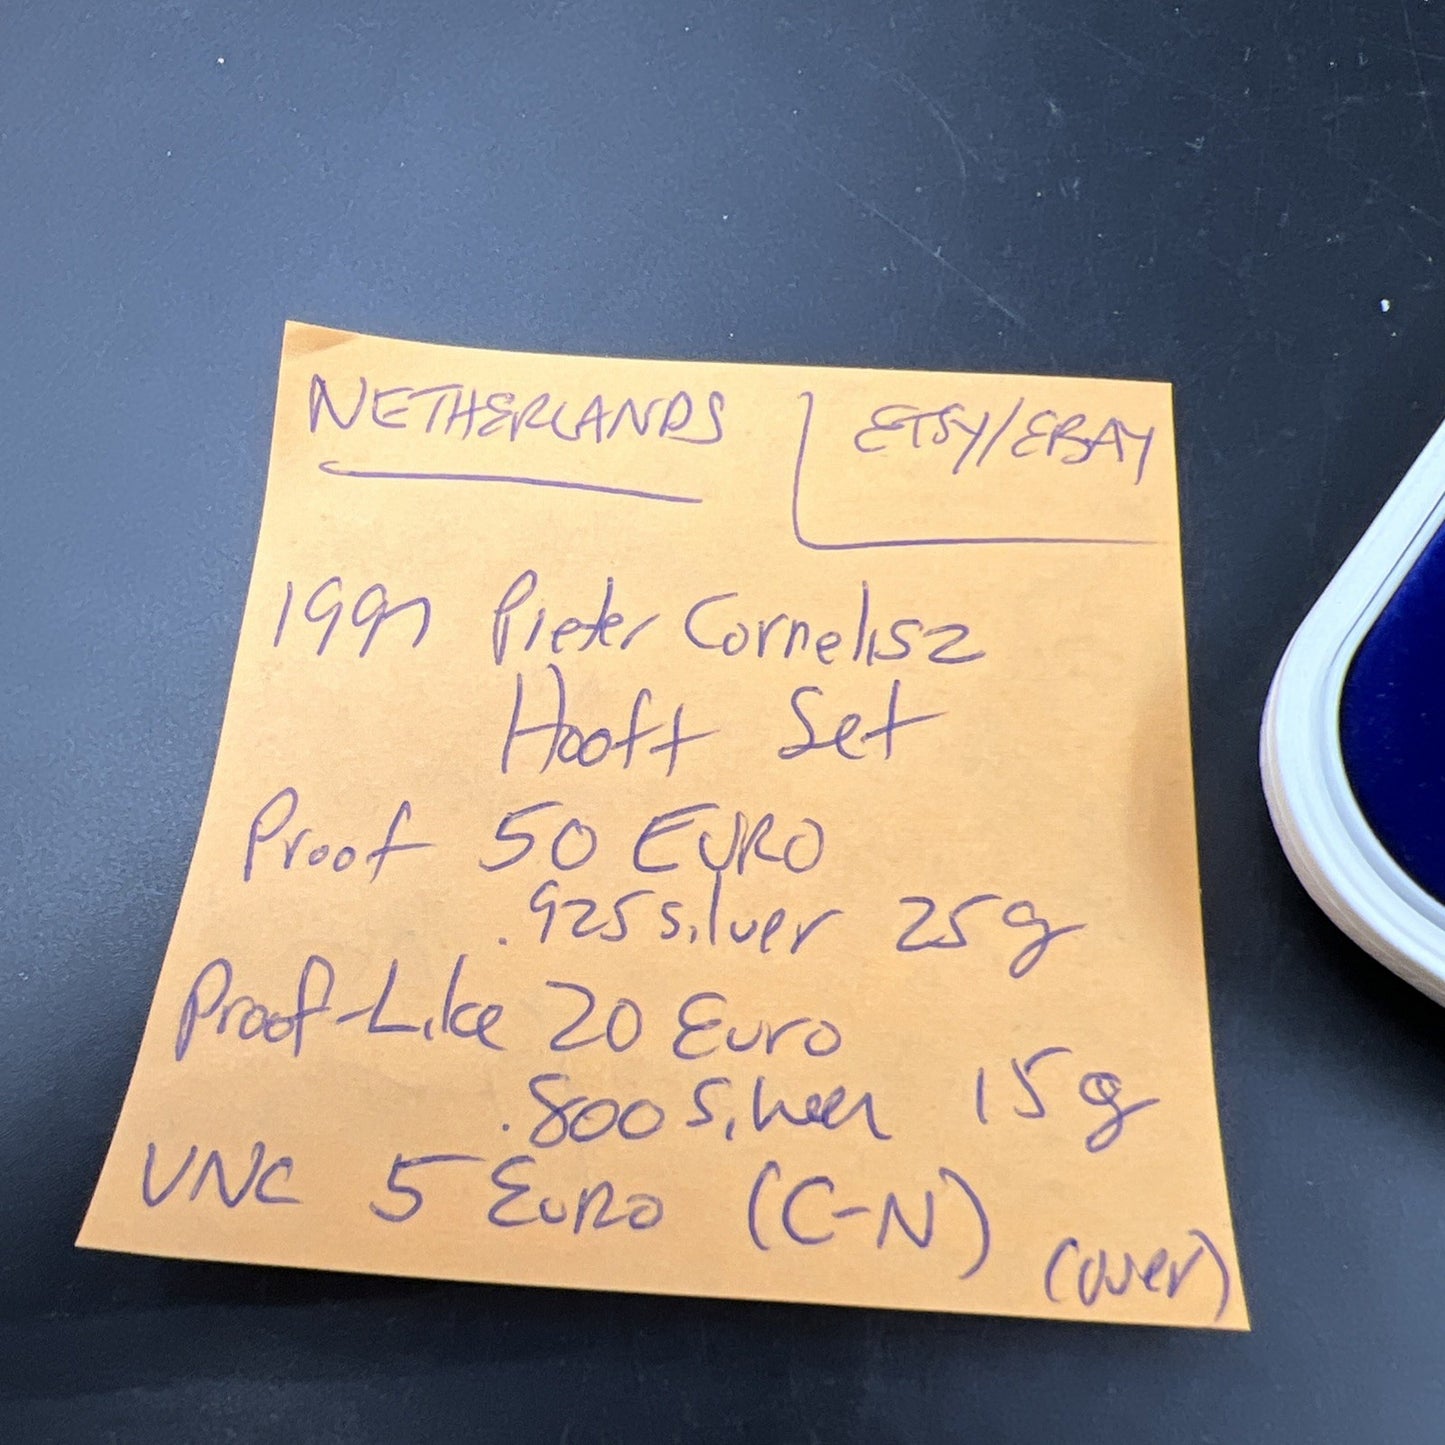 NETHERLANDS
ETSY/EBAY
1997 Pieter Cornelisz
Hooft Set
Proof 50 EURO
.925 silver 25g
Proof-Like 20 Euro
.800 Silver 15g
UNC 5 EURO (C-N)
(over)